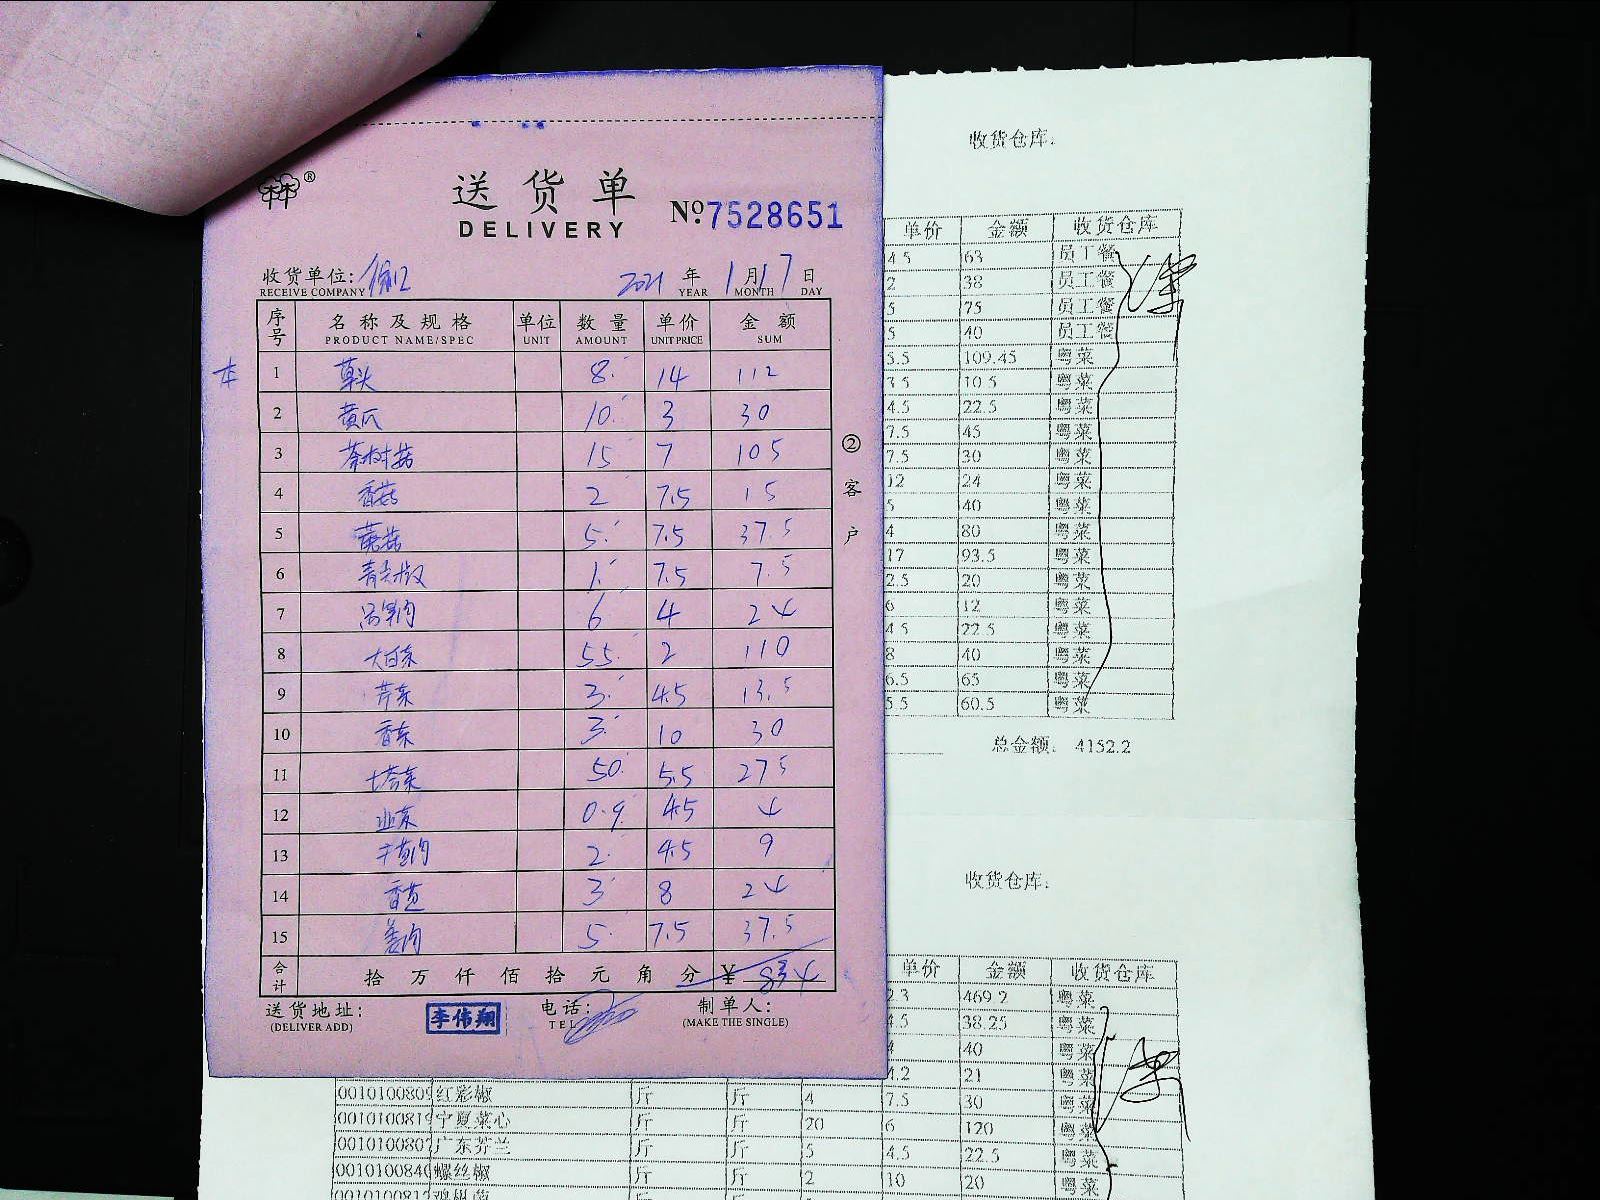 送货单
DELIVERY
№ 7528651
收货单位:
RECEIVE COMPANY
2021 年 1 月 17 日
YEAR MONTH DAY
序号 名称及规格 单位 数量 单价 金额
PRODUCT NAME/SPEC UNIT AMOUNT UNIT PRICE SUM
1 草头 8 14 112
2 黄瓜 10 3 30
3 茶树菇 15 7 105
4 香菇 2 7.5 15
5 蘑菇 5 7.5 37.5
6 青尖椒 1 7.5 7.5
7 6 4 24
8 大白菜 55 2 110
9 芹菜 3 4.5 13.5
10 香菜 3 10 30
11 塔菜 50 5.5 275
12 韭菜 0.9 4.5 4
13 2 4.5 9
14 香葱 3 8 24
15 姜肉 5 7.5 37.5
合计 拾万仟佰拾元角分 ¥ 834
② 客户
送货地址: 李伟翔 电话: 制单人:
(DELIVER ADD) TEL (MAKE THE SINGLE)
收货仓库:
单价 金额 收货仓库
4.5 63 员工餐
2 38 员工餐
5 75 员工餐
5 40 员工餐
5.5 109.45 粤菜
3.5 10.5 粤菜
4.5 22.5 粤菜
7.5 45 粤菜
7.5 30 粤菜
12 24 粤菜
5 40 粤菜
4 80 粤菜
17 93.5 粤菜
2.5 20 粤菜
6 12 粤菜
4.5 22.5 粤菜
8 40 粤菜
6.5 65 粤菜
5.5 60.5 粤菜
总金额: 4152.2
收货仓库:
单价 金额 收货仓库
2.3 469.2 粤菜
4.5 38.25 粤菜
4 40 粤菜
4.2 21 粤菜
0010100809 红彩椒 斤 斤 4 7.5 30 粤菜
0010100819 宁夏菜心 斤 斤 20 6 120 粤菜
0010100807 广东芥兰 斤 斤 5 4.5 22.5 粤菜
0010100840 螺丝椒 斤 斤 2 10 20 粤菜